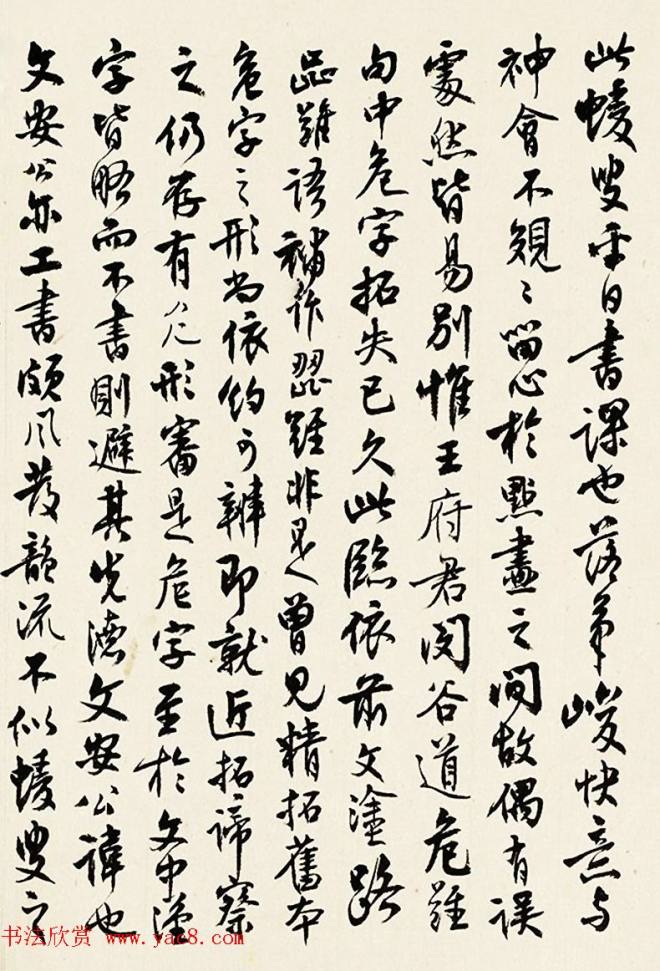 此蝯叟平日書課也落筆峻快意与
神會不䂓〻留心於點畫之間故偶有誤
處然皆易别惟王府君閔谷道危難
句中危字拓失已久此臨依前文塗路
歰難語補作歰雖非是曾見精拓舊本
危字之形尚依約可辨即就近拓諦察
之仍存有形審是危字至於文中漢
字皆略而不書則避其先德文安公諱也
文安公亦工書頗風發韻流不似蝯叟之
书法欣赏 www.yac8.com